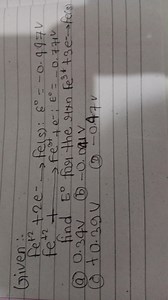 Given:-
Fe⁺² + 2e⁻ → Fe(s): E° = -0.447V
Fe⁺² → Fe³⁺ + e⁻: E° = -0.771V
find E° for the rxn Fe³⁺ + 3e⁻ → Fe(s)
(a) 0.34V (b) -0.041V
(c) +0.39V (d) -0.47V